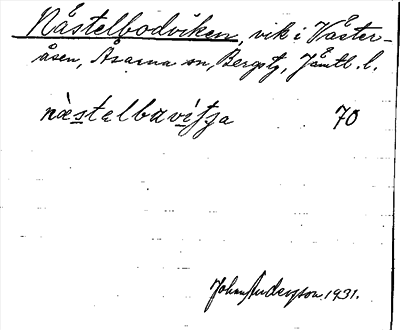 Nästelbodviken, vik i Väster-
åsen, Åsarna sn, Bergstg, Jämtl. l.
næstelbavitja 70
John Andersson 1931.